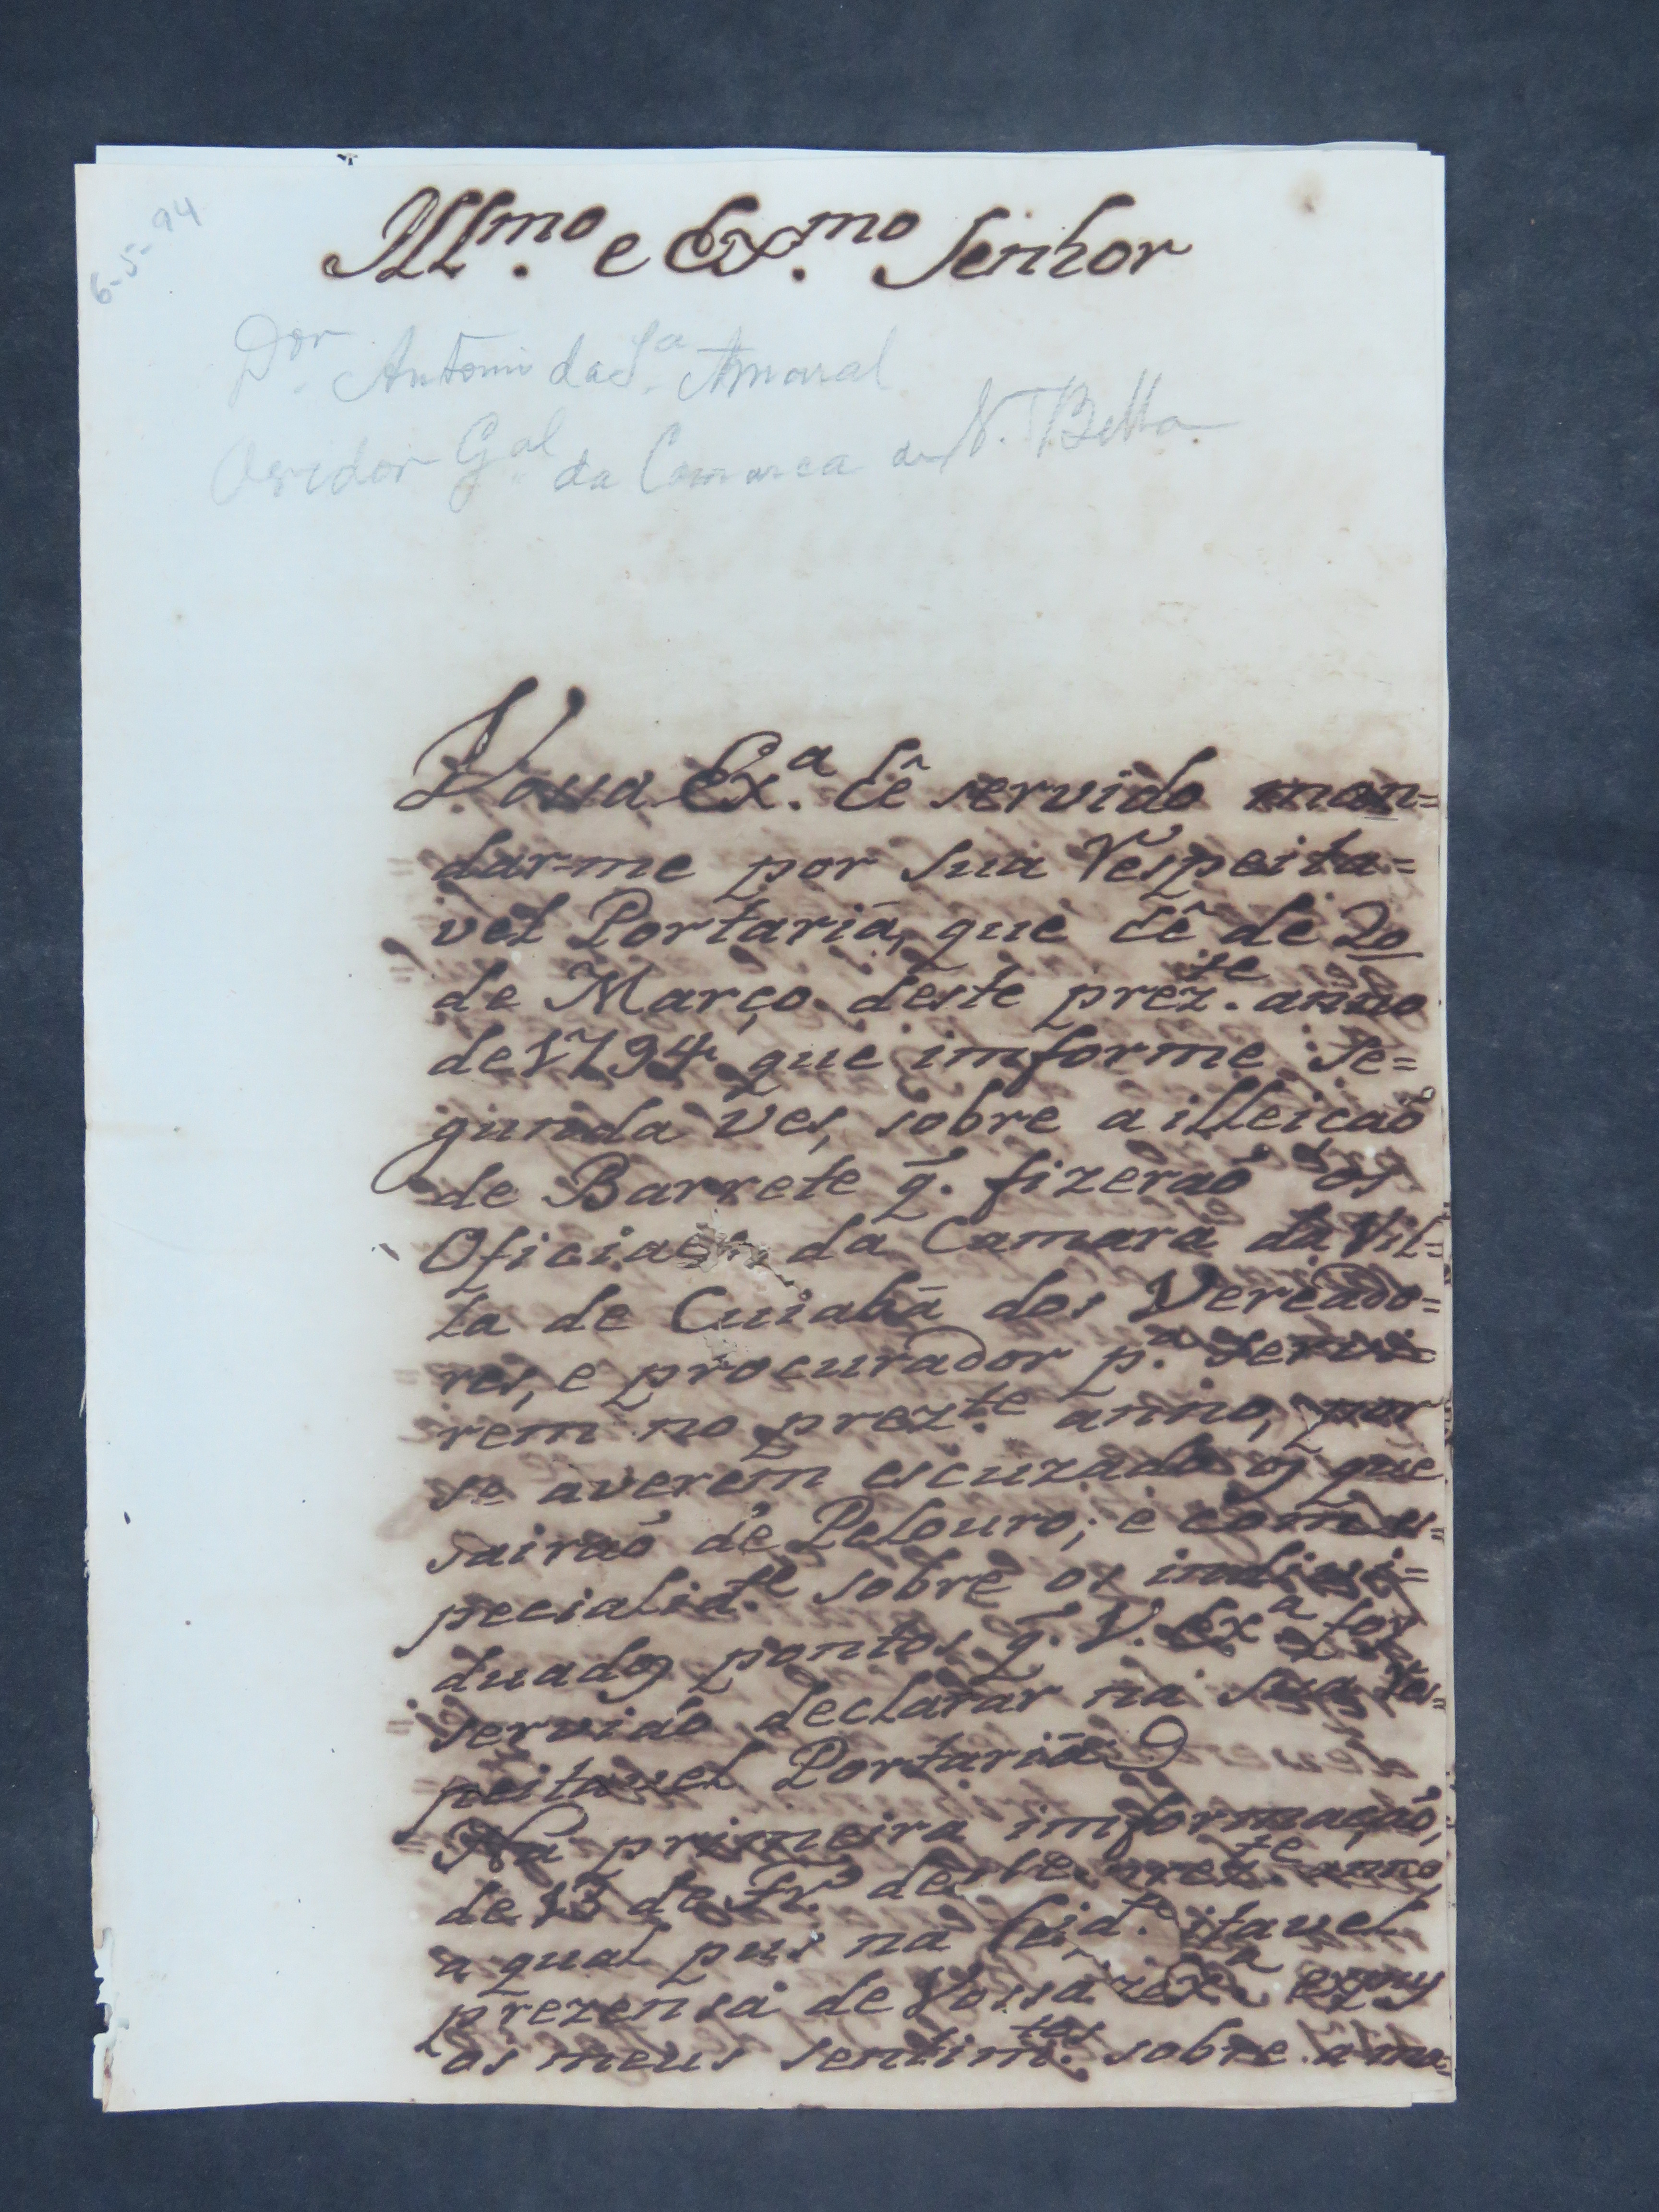 6-5-94
Ill.mo e Ex.mo Senhor
D.or Antonio da S.a Amaral
Ovidor G.al da Comarca de V. Bella
Vossa Ex.a hê servido man=
dar-me por sua Respeita=
vel Portaria, que hê de 20
de Março deste prez.te anno
de 1794 que imforme se=
gunda ves, sobre a illeicaõ
de Barrete q̃. fizeraõ os
Oficiaes da Camara da Vil=
la de Cuiabá dos Vereado=
res, e procurador p.a servi=
rem no prez.te anno, por
se averem escuzado os que
sairaõ de Pelouro; e com es=
pecialid.e sobre os indivi=
duados pontos q̃. V. Ex.a foy
servido declarar na sua Res=
peitavel Portaria
Na primeira imformação,
de 13 de Fr.o deste prez.te anno
a qual pus na
prezensa de Vossa Ex.a expus
os meus sentim.tos sobre a ma=